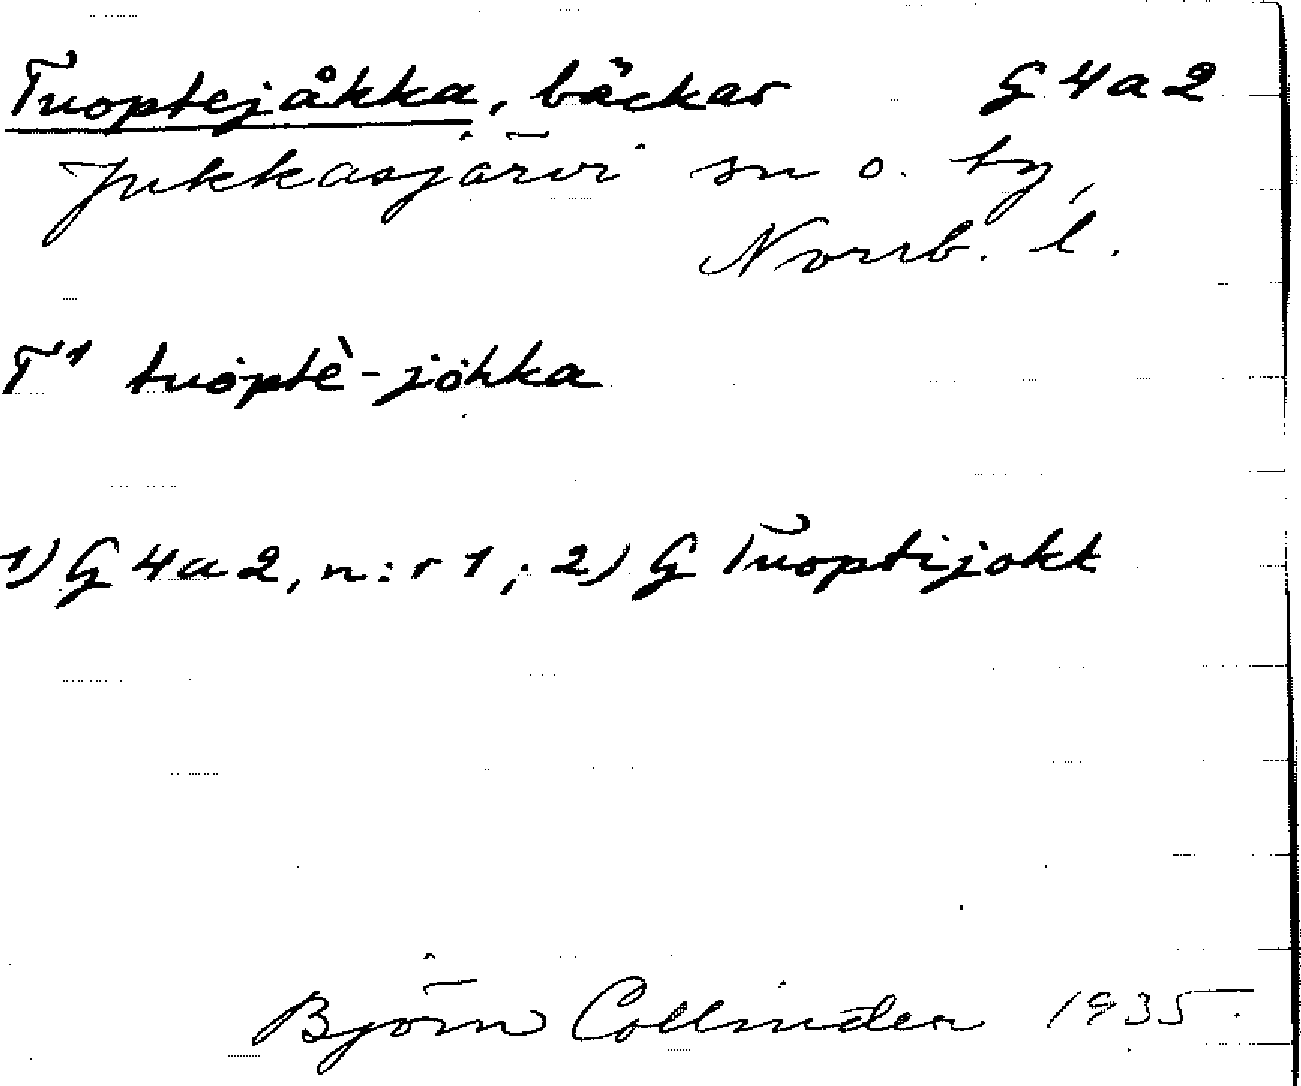 Tuoptejåkka, bäckar G 4a2
Jukkasjärvi sn o. by,
Norrb. l.
T¹ tuoptè-johka
1) G 4a2, n:r 1; 2) G Tuoptijokk
Björn Collinder 1935.